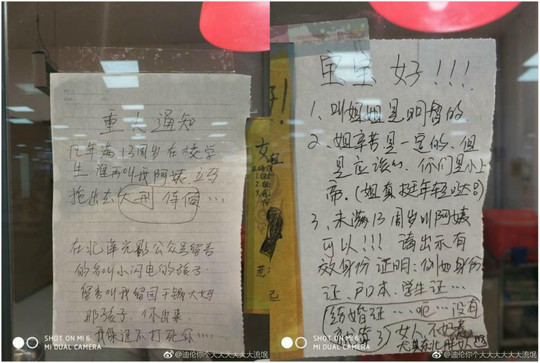 重大通知
凡年满13周岁在校学
生 谁再叫我阿姨 立马
拖出去大刑伺候…
在北洋光影公众号留言
的名叫小闪电的孩子
留言叫我留园干锅大妈
那孩子 你出来
我保证不打死你…
重生好!!!
1、叫姐姐是明智的
2、姐辛苦是一定的、但
是应该的、你们是小上
帝。(姐真挺年轻哒)
3、未满13周岁叫阿姨
可以!!! 请出示有
效身份证明:例如身份
证、户口本、学生证…
结婚证…呃…没有
女人不好惹
SHOT ON MI 6
MI DUAL CAMERA
SHOT ON MI 6
MI DUAL CAMERA
@迪伦你个大大大大大大流氓
@迪伦你个大大大大大大流氓